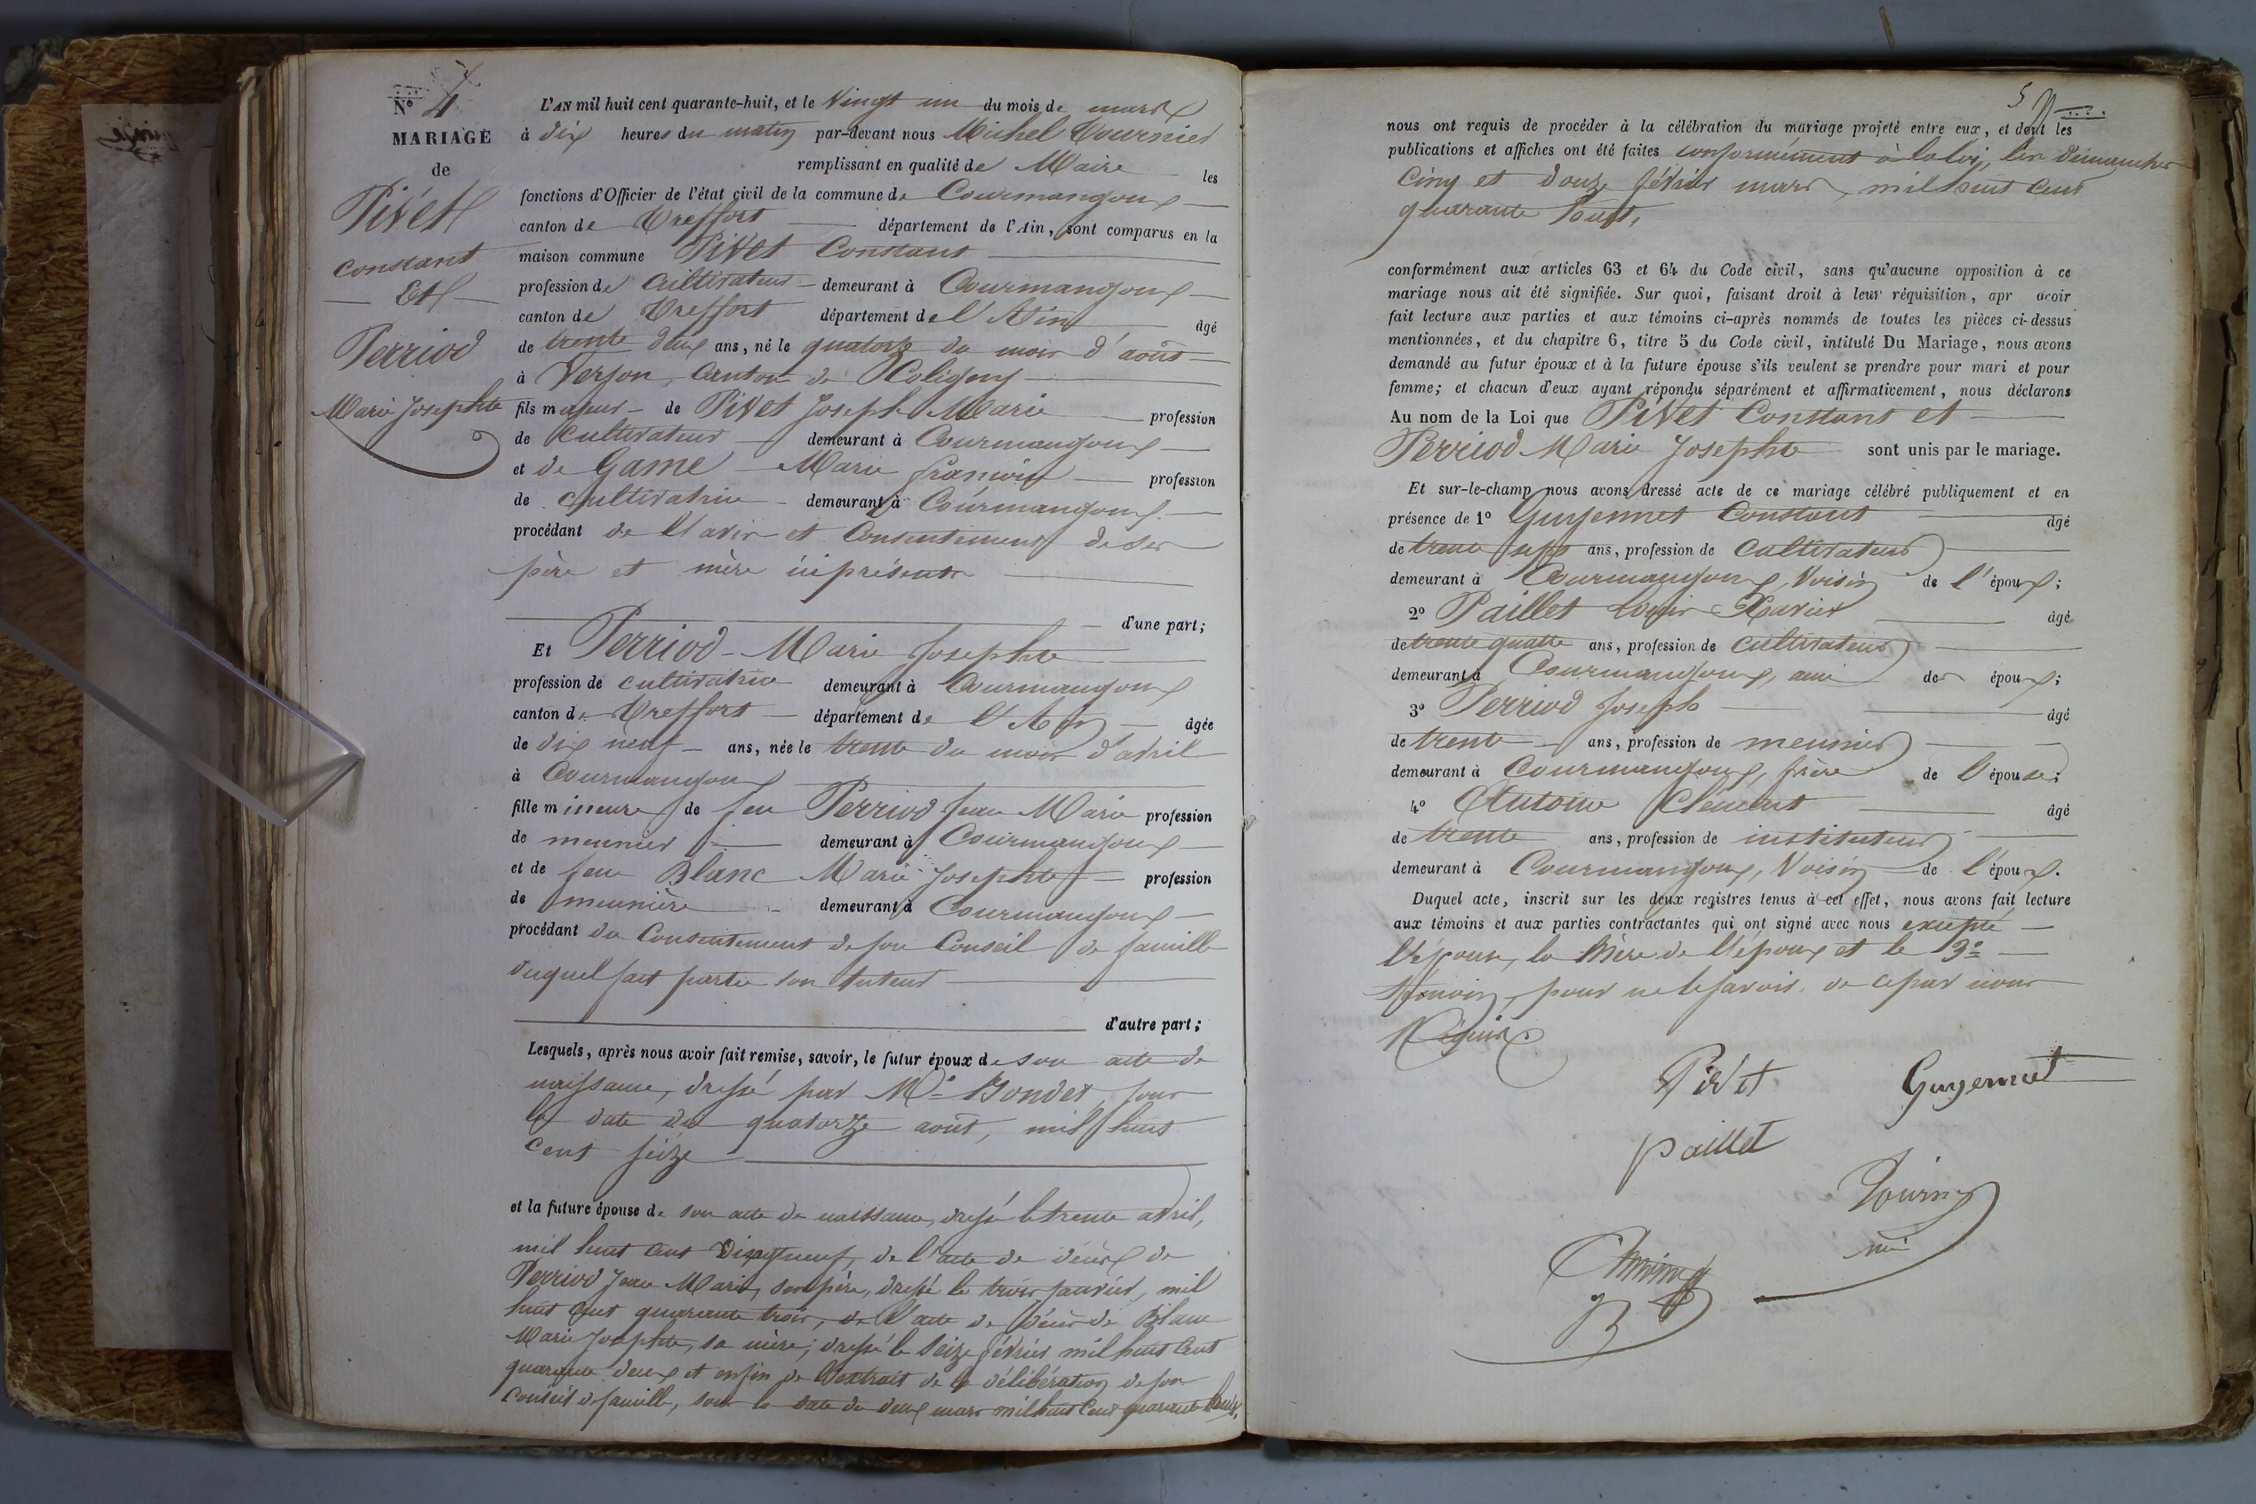 N° 4
MARIAGE
de
Pivet
Constant
Et
Perriod
Marie Josephte
L'AN mil huit cent quarante-huit, et le Vingt un du mois de mars
à dix heures du matin par-devant nous Michel Tournier
remplissant en qualité de Maire les
fonctions d'Officier de l'état civil de la commune de Courmangoux
canton de Treffort département de l'Ain, sont comparus en la
maison commune Pivet Constant
profession de cultivateur demeurant à Courmangoux
canton de Treffort département de l'Ain âgé
de trente deux ans, né le quatorze du mois d'août
à Verjon, Canton de Coligny
fils majeur de Pivet Joseph Marie profession
de cultivateur demeurant à Courmangoux
et de Game Marie françoise profession
de cultivatrice demeurant à Courmangoux
procédant de l'avis et Consentement de ses
père et mère ici présents
d'une part;
Et Perriod Marie Josephte
profession de cultivatrice demeurant à Courmangoux
canton de Treffort département de l'Ain âgée
de dix neuf ans, née le trente du mois d'avril
à Courmangoux
fille mineure de feu Perriod Jean Marie profession
de meunier demeurant à Courmangoux
et de feue Blanc Marie Josephte profession
de meunière demeurant à Courmangoux
procédant du Consentement de son Conseil de famille
duquel fait partie son tuteur
d'autre part;
Lesquels, après nous avoir fait remise, savoir, le futur époux de son acte de
naissance, dressé par Mr Bondet, sous
la date du quatorze août, mil huit
cent seize
et la future épouse de son acte de naissance, dressé le trente avril,
mil huit cent Vingt neuf, de l'acte de décès de
Perriod Jean Marie, son père, dressé le trois janvier, mil
huit cent quarante trois, de l'acte de décès de Blanc
Marie Josephte, sa mère, dressé le seize février mil huit cent
quarante deux et enfin de l'extrait de la délibération de son
Conseil de famille, sous la date du deux mars mil huit cent quarante huit,
5
nous ont requis de procéder à la célébration du mariage projeté entre eux, et dont les
publications et affiches ont été faites conformément à la loi, les dimanches
Cinq et douze février mars, mil huit cent
quarante huit,
conformément aux articles 63 et 64 du Code civil, sans qu'aucune opposition à ce
mariage nous ait été signifiée. Sur quoi, faisant droit à leur réquisition, apr avoir
fait lecture aux parties et aux témoins ci-après nommés de toutes les pièces ci-dessus
mentionnées, et du chapitre 6, titre 5 du Code civil, intitulé Du Mariage, nous avons
demandé au futur époux et à la future épouse s'ils veulent se prendre pour mari et pour
femme; et chacun d'eux ayant répondu séparément et affirmativement, nous déclarons
Au nom de la Loi que Pivet Constant et
Perriod Marie Josephte sont unis par le mariage.
Et sur-le-champ nous avons dressé acte de ce mariage célébré publiquement et en
présence de 1° Guyennet Constant âgé
de trente sept ans, profession de cultivateur
demeurant à Courmangoux, Voisin de l'époux;
2° Paillet Louis Xavier âgé
de trente quatre ans, profession de cultivateur
demeurant à Courmangoux, ami des époux;
3° Perriod Joseph âgé
de trente ans, profession de meunier
demeurant à Courmangoux, frère de l'épouse;
4° Antoine Clément âgé
de trente ans, profession de instituteur
demeurant à Courmangoux, Voisin de l'époux.
Duquel acte, inscrit sur les deux registres tenus à cet effet, nous avons fait lecture
aux témoins et aux parties contractantes qui ont signé avec nous excepté
l'épouse, la Mère de l'époux et le 3e
témoin, pour ne le savoir, de ce par nous
Requis
Pivet
Guyennet
Paillet
Tournier